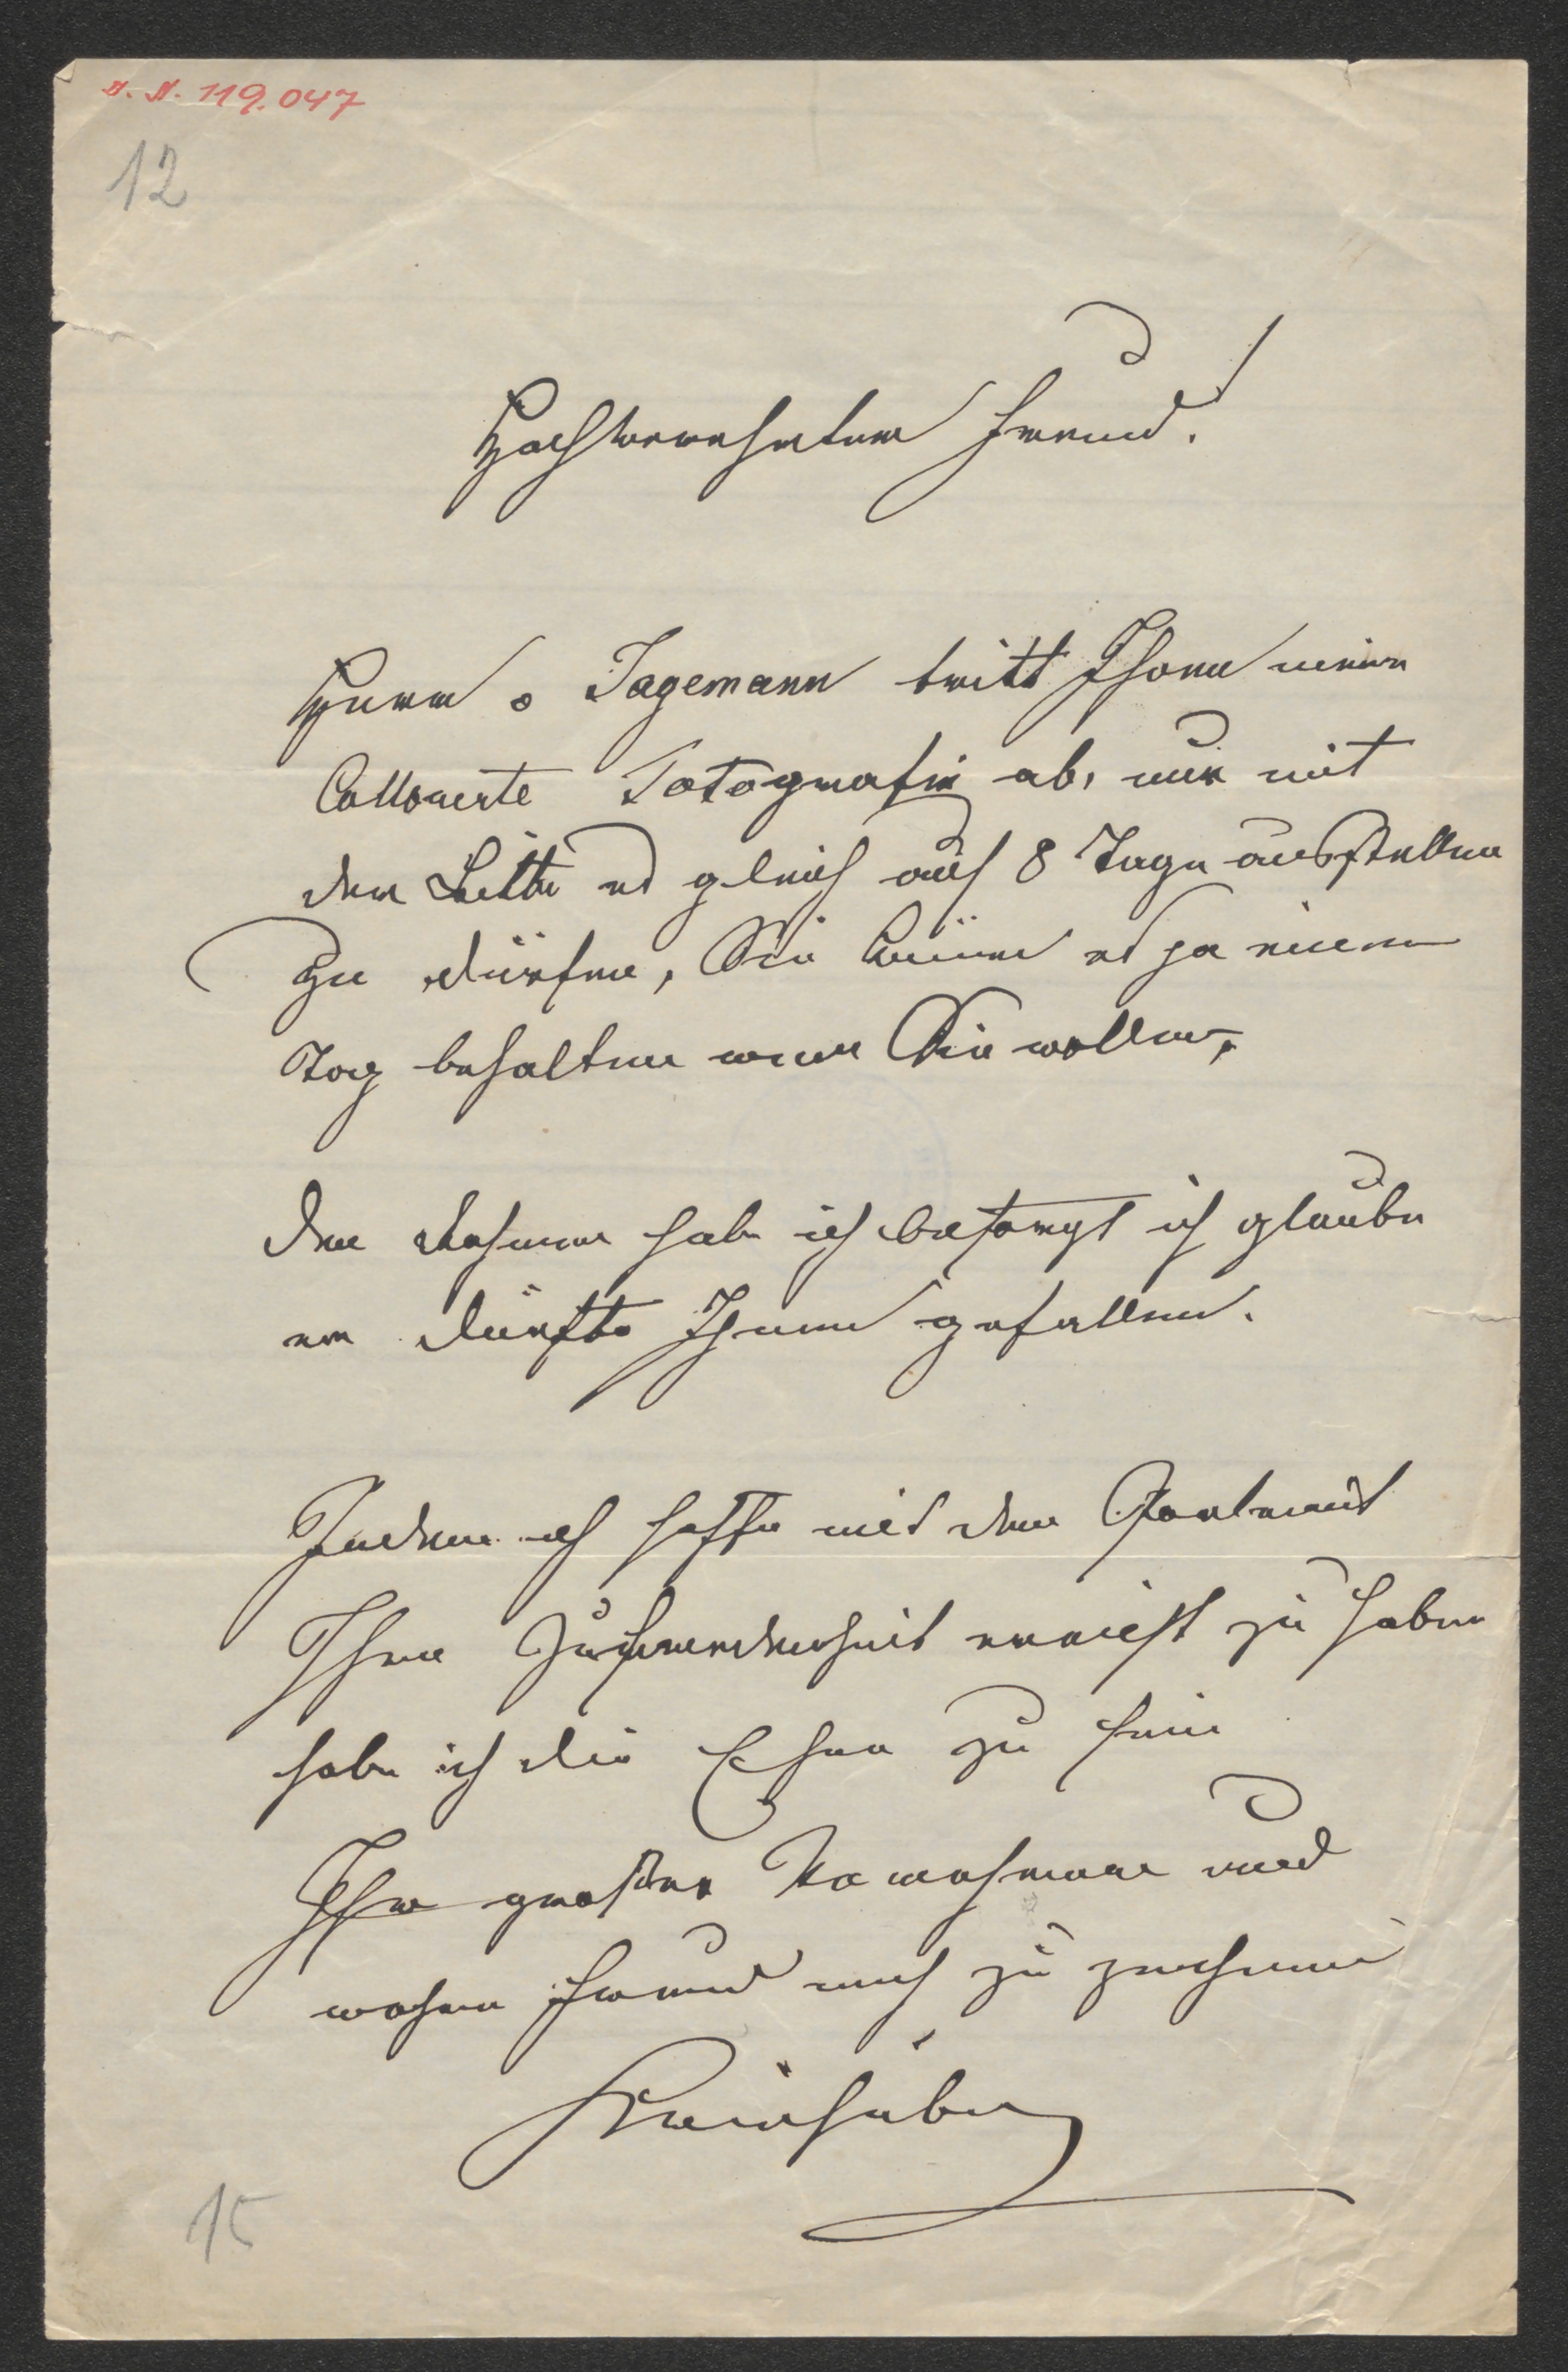 H. N. 119.047
12
Hochverehrter Freund!
Herr v Jagemann tritt Ihnen meine
Collorierte Fotografie ab, nur mit
der Bitte es gleich auf 8 Tage ausstellen
zu dürfen, Sie können es ja einen
Tag behalten wenn Sie wollen,
den Rahmen habe ich besorgt ich glaube
er dürfte Ihnen gefallen.
Indem ich hoffe mit dem Portrait
Ihre Zufriedenheit erreicht zu haben
habe ich die Ehre zu sein
Ihr großer Verehrer und
wahrer Freund mich zu zeichnen
15